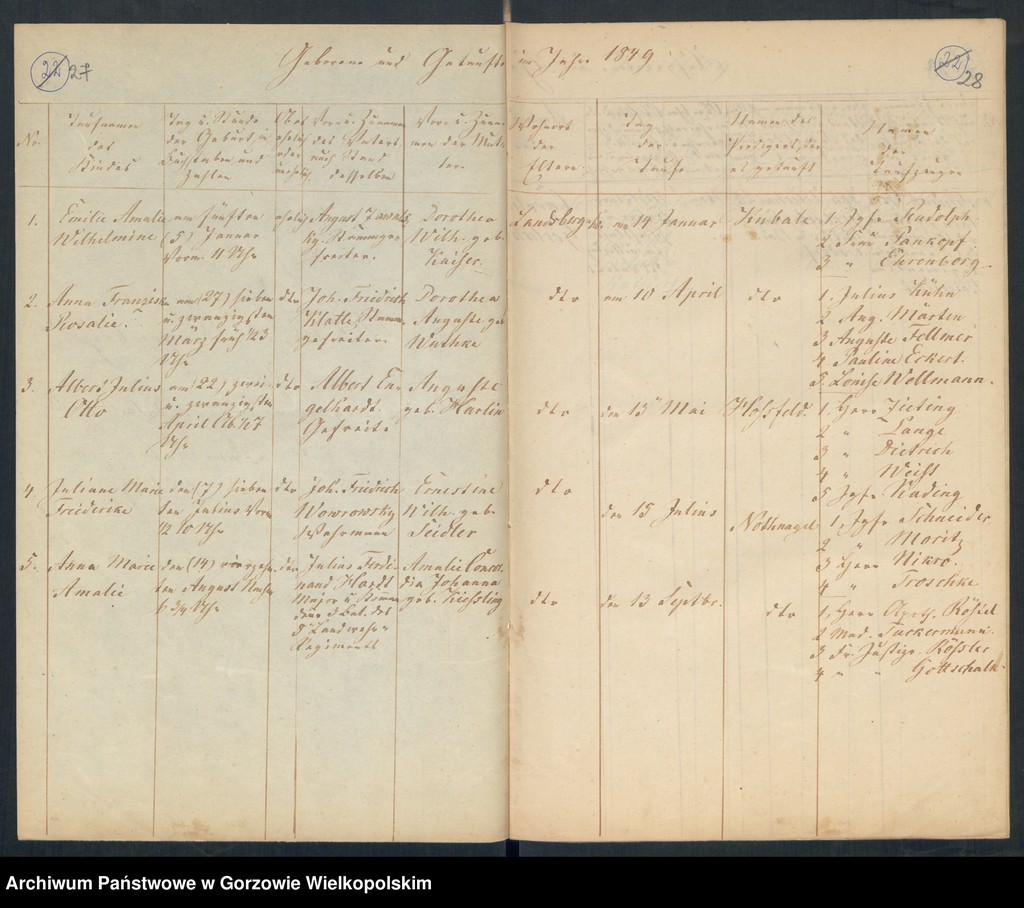 22 27
22 28
Geborene und Getaufte im Jahre 1849
No.
Taufnamen
des
Kindes
Tag u. Stunde
der Geburt, in
Buchstaben und
Zahlen
Ob
ehelich
oder
unehelich
Vor u. Zunamen
des Vaters
nach Stand
desselben
Vor u. Zuna-
men der Mut-
ter.
Wohnort
der
Eltern.
Tag
der
Taufe
Namen des
Predigers, der
es getauft
Namen
der
Taufzeugen
1.
Emilie Amalie
Wilhelmine
am fünften
(5) Januar
Vorm. 11 Uhr
ehelig
August
gefreiter.
Dorothea
Wilh. geb.
Kaiser.
Landsberg
am 14 Januar
Kubale
1. Jgfr Rudolph
2 Frau Pankopf.
3 " Ehrenberg.
2.
Anna Franziska
Rosalie.
am (27) sieben
u. zwanzigsten
März früh 1/2 3
Uhr
dto
Joh. Friedrich
Klatte, Stamm-
gefreiter.
Dorothea
Auguste geb
Wuthke
dto
am 10 April
dto
1. Julius Kühn
2 Aug. Märten
3 Auguste Fellmer
4 Pauline Eckert.
5. Louise Wollmann.
3.
Albert Julius
Otto
am (22) zwei-
u. zwanzigsten
April Ab. 1/2 7
Uhr
dto
Albert En-
gelhardt.
Gefreite
Auguste
geb. Harlin
dto
den 13 Mai
Hossfeld.
1. Herr Zieting
2 " Lange
3 " Dietrich
4 " Weihl
5 Jgfr Kading
4.
Juliane Marie
Friedericke
den (7) sieben
ten Julius Vorm
1/2 10 Uhr
dto
Joh. Friedrich
Wowrowsky
Wehrmann
Ernestine
Wilh. geb.
Seidler
dto
den 15 Julius
Nothnagel
1. Jgfr Schneider
2 " Moritz
3 Herr Nikro.
4 " Troschke
5.
Anna Marie
Amalie
den (14) vierzehn
ten August
6 3/4 Uhr
dto
Julius Ferdi-
nand Hardt
Major u. Komman
deur d. Bat. des
5. Landwehr-
Regiments
Amalie Concor-
dia Johanna
geb. Kiessling
dto
den 13 Septbr.
dto
1. Herr Apoth. Rössel
2 Mad. Tuckermann.
3 Fr. Justizr. Rössler
4 " " Gottschalk.
Archiwum Państwowe w Gorzowie Wielkopolskim